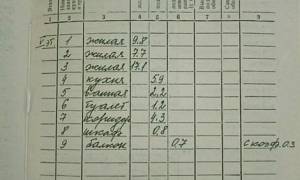 1 2 3 4 5 6 7 8 9
1 жилая 9.8
2 жилая 7.7
3 жилая 17.1
4 кухня 5.9
5 ванная 2.2
6 туалет 1.2
7 коридор 4.3
8 шкаф 0,8
9 балкон 0.7 с коэф. 0.3